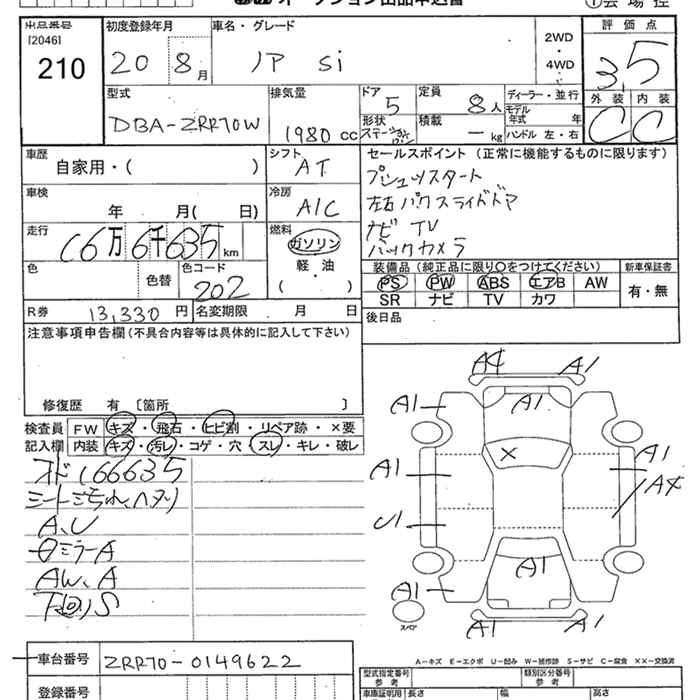 オークション出品申込書
①会場控
出品番号 初度登録年月 車名・グレード 2WD・4WD 評価点
[2046]
210 20 8月 ノア Si 3.5
型式 排気量 ドア 定員 ディーラー・並行 外装 内装
DBA-ZRR70W 1980cc 5 8人 モデル年式 年 C C
形状 積載 ハンドル 左・右
一 kg
車歴 シフト セールスポイント(正常に機能するものに限ります)
自家用・( ) AT プシュッスタート
車検 冷房 左右パワスライドドア
年 月( 日) A/C ナビ TV
走行 燃料 バックカメラ
16万6千635km ガソリン
軽・油
( )
色 色替 色コード
202
装備品(純正品に限り○をつけてください) 新車保証書
PS PW ABS エアB AW 有・無
SR ナビ TV カワ
R券 13,330円 名変期限 月 日 後日品
注意事項申告欄(不具合内容等は具体的に記入して下さい)
修復歴 有 〔箇所 〕
検査員 FW キズ・飛石・ヒビ割・リペア跡・×要
記入欄 内装 キズ・汚レ・コゲ・穴・スレ・キレ・破レ
オド166635
A、U
ミラーA
AW、A
下回りS
A4 A1
A1 A1
×
A1 A1
A4
U1
A1
A1
スペア
A1 A1
A-キズ E-エクボ U-凹み W-補修跡 S-サビ C-腐食 ××-交換済
車台番号 ZRR70-0149622
登録番号
型式指定番号 参考 類別区分番号 参考
車庫証明用 長さ 幅 高さ